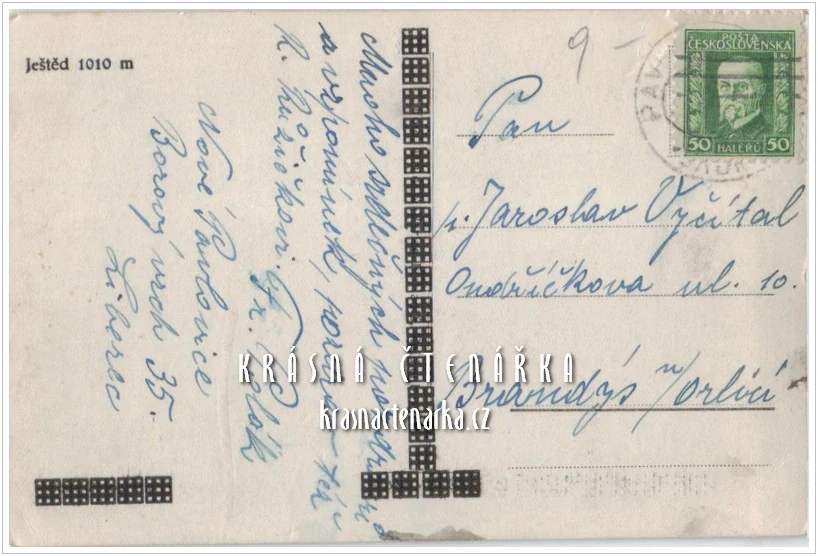 Ještěd 1010 m
Mnoho srdečných pozdravů
a vzpomínek, pozdrav též
R. Růžičkovi. Fr. Polák
Nové Pavlovice
Borový vrch 35.
Liberec
9 –
POŠTA
ČESKOSLOVENSKÁ
50 HALÉŘŮ 50
PAV
Pan
p. Jaroslav Vyčítal
Ondříčkova ul. 10.
Brandýs n/Orlicí
KRÁSNÁ ČTENÁŘKA
krasnactenarka.cz